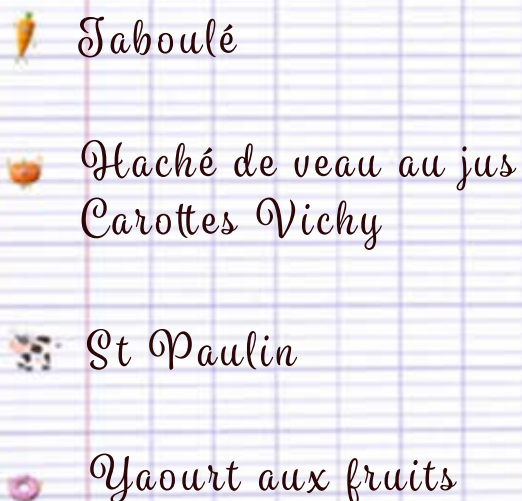 Taboulé
Haché de veau au jus
Carottes Vichy
St Paulin
Yaourt aux fruits